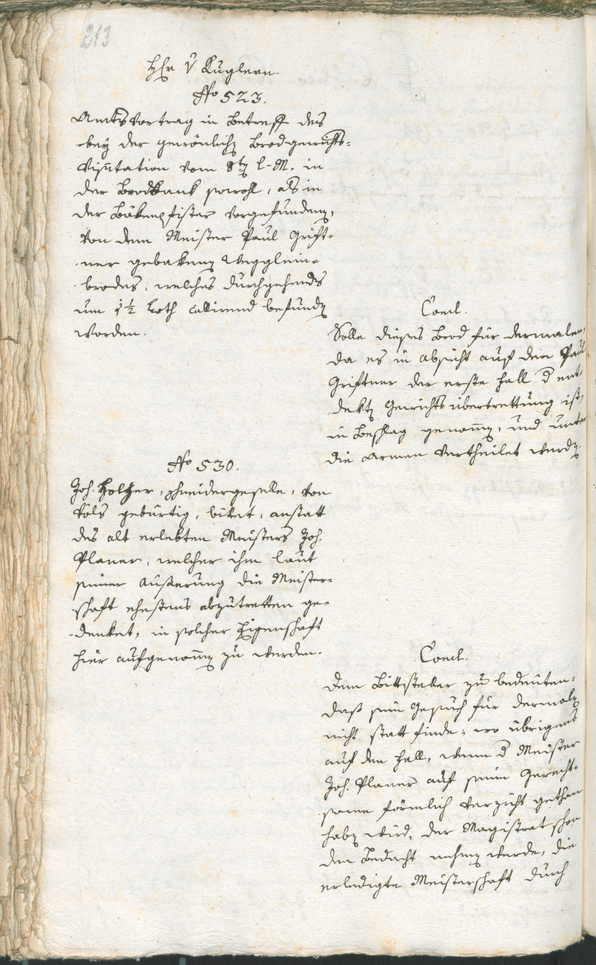 213
Hr v Kuglern.
No 523.
Amtsvortrag in Betreff des
bey der gewönlichen Brodgewichts-
Visitation vom 8ten l. M. in
der Brodbank sowohl, als in
der Bäken vorgefunden,
von dem Meister Paul Grift-
ner gebakenen Wegglein-
brodes, welches durchgehends
um 1½ Loth callirend befunden
worden.
Concl.
Solle dieses Brod für dermalen,
da es in absicht auf den Paul
Griftner der erste Fall d ent-
dekten Gewichtsübertrettung ist,
in Beschlag genommen, und unter
die Armen vertheilet werden.
No 530.
Joh. Holzer, Schneidergeselle, von
Völs gebürtig, bittet, anstatt
des alt erlebten Meisters Joh.
Planer, welcher ihm laut
seiner Äußerung die Meister-
schaft ehestens abzutretten ge-
denket, in solcher Eigenschaft
hier aufgenommen zu werden.
Concl.
dem Bittsteller zu bedeuten,
daß sein Gesuch für dermalen
nicht statt finde; wo übrigens
auf den Fall, wenn d Meister
Joh. Planer auf seine Gerecht-
same förmlich Verzicht gethan
haben wird, der Magistrat schon
den Bedacht nehmen werde, die
erledigte Meisterschaft durch